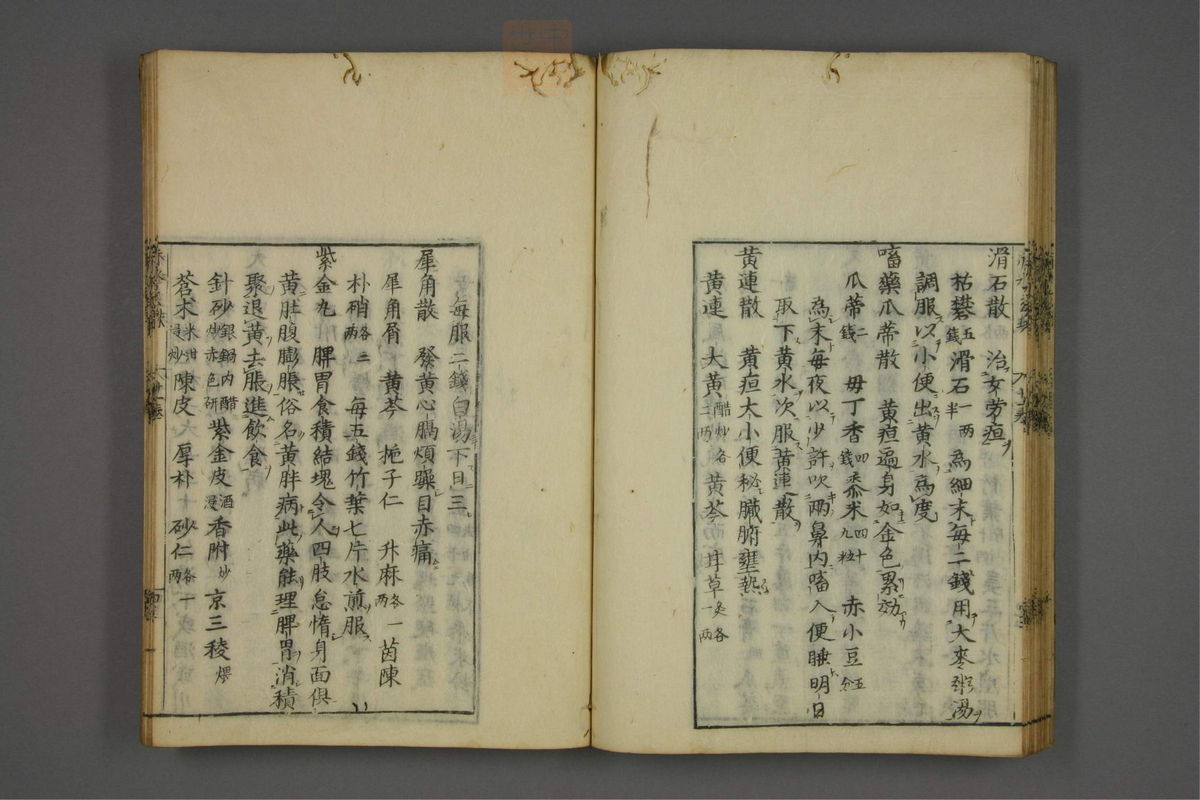 滑石散　治女勞疸
枯礬五錢滑石一兩半為細末每二錢用大麥粥湯
調服以小便出黄水為度
㗜藥瓜蒂散　黄疸遍身如金色累効
瓜蒂二錢　毋丁香四錢黍米四十九粒　赤小豆五分
為末每夜以少許吹兩鼻内㗜入便睡明日
取下黄水次服黄連散
黄連散　黄疸大小便秘臟腑壅熱
黄連　大黄醋炒各二兩黄芩　甘草炙各一兩
每服二錢白湯下日三
犀角散　發黄心膈煩躁目赤痛
犀角屑　黄芩　梔子仁　升麻各一兩茵陳
朴硝各二兩　每五錢竹葉七片水煎服
紫金丸　脾胃食積結塊令人四肢怠惰身面俱
黄肚腹膨脹俗名黄胖病此藥能理脾胃消積
聚退黄去脹進飲食
針砂銀鍋内醋炒赤色研紫金皮酒浸香附炒京三稜煨
蒼朮米泔浸炒陳皮　厚朴　砂仁各一兩